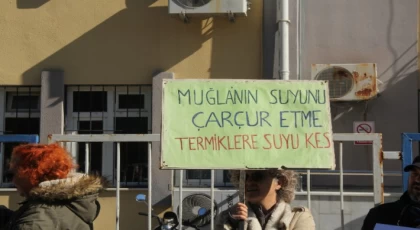 MUĞLANIN SUYUNU
ÇARÇUR ETME
TERMİKLERE SUYU KES